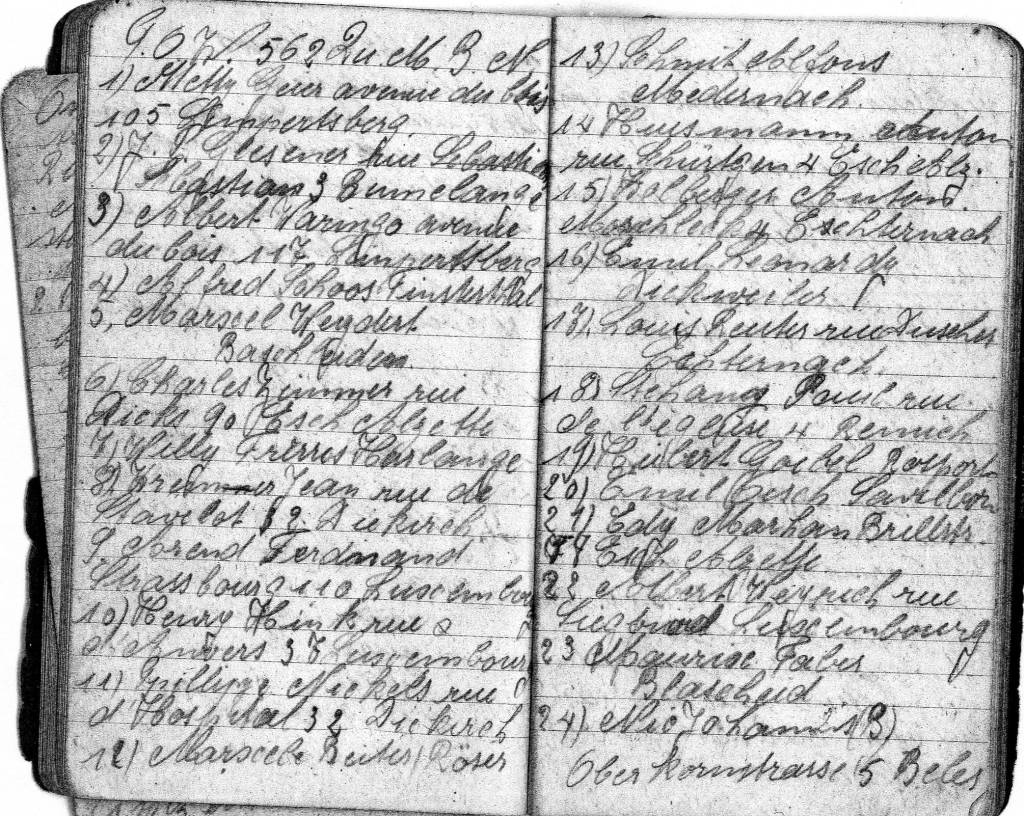 562 Qu. M. B. N.
1) Metty Geier avenue du bois
105 Limpertsberg.
2) J. Glesener rue Sebastian
Sbastian 3 Rumelange
3) Albert Varingo avenue
du bois 117 Limpertsberg
4) Alfred Schoos Finsterthal
5, Marscel Heydert
Baschleiden.
6) Charles Zimmer rue
Dicks 90 Esch Alzette
7) Willy Frerres Harlange
8) Kremmer Jean rue de
Stavelot 12. Diekirch,
9. Arend Ferdinand
Strassbourg 110 Luxembourg
10) Henry Hink rue
d'Anvers 37 Luxembourg
11) Nickels rue
d'Hospital 32 Diekirch
12) Reuter Röser
13) Schmit Alfons
Medernach.
14 Husmann Anton
rue Schürtgen 4 Esch Alz.
15) Anton
4 Echternach
16) Emil Leonardy
Dickweiler
17). Louis Reuter rue Duscher
Echternach.
18) Schang Paul rue
de l'église 4 Remich
19) Hubert Goebel Rosport
20) Emil Esch Savelborn
21) Edy Marhan Brillstr.
74 Esch Alzette
22 Albert Weyrich rue
Luxembourg
23 Maurice Faber
Blascheid
24) Nic (B)
Oberkornstrasse 5 Beles